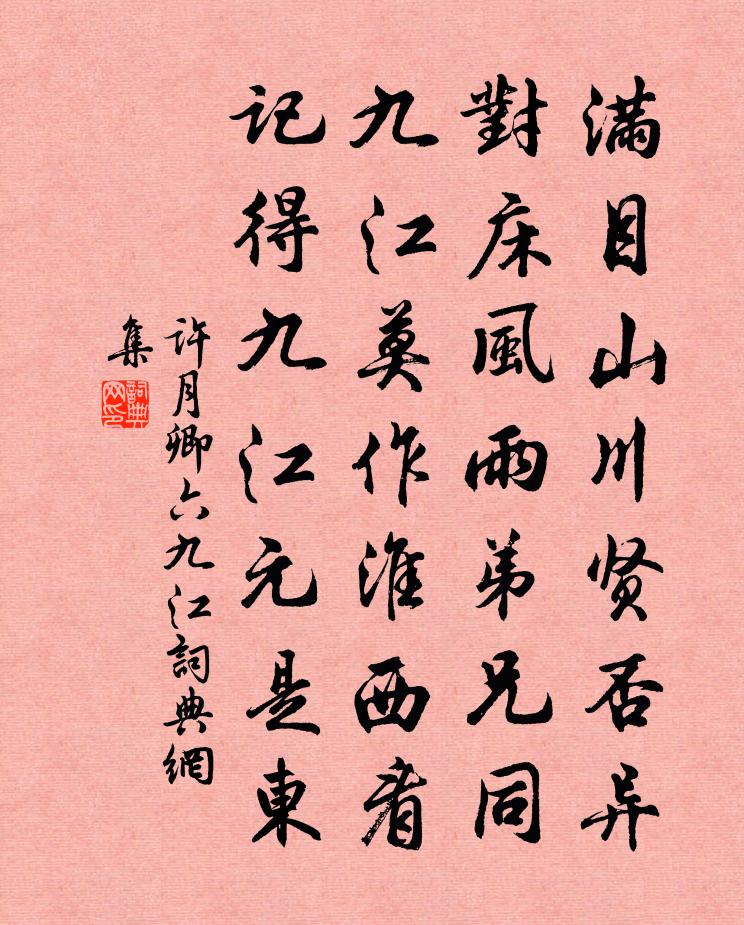 滿目山川贤否异
對床風雨弟兄同
九江莫作淮西看
記得九江元是東
許月卿六九江詞典網
集
詞典網印